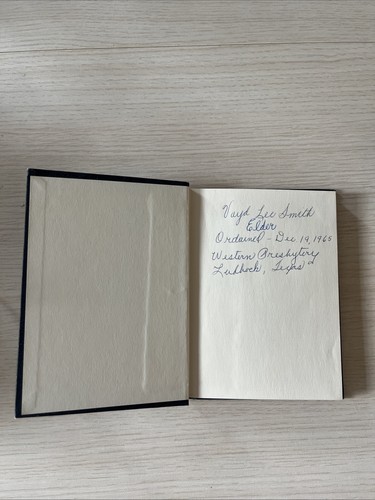 Vayd Lee Smith
Elder
Ordained - Dec 19, 1965
Western Presbytery
Lubbock, Texas